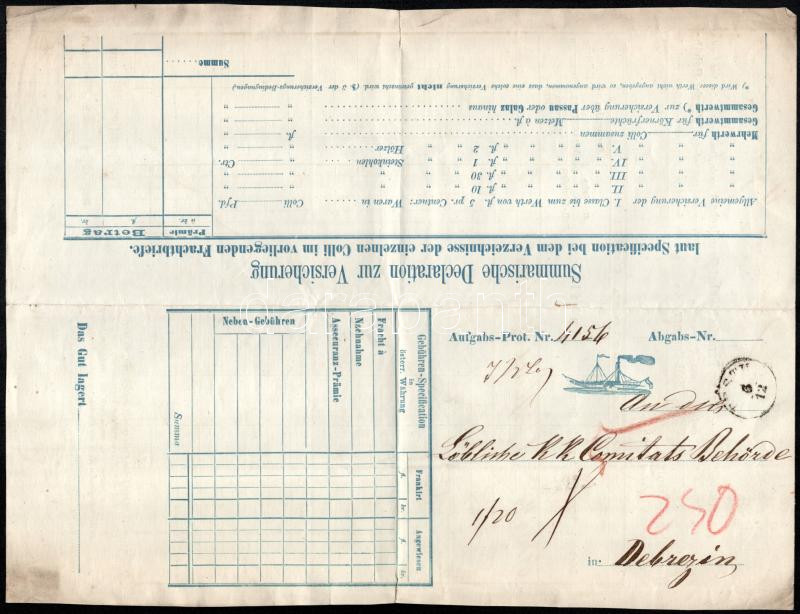 Summarische Declaration zur Versicherung
laut Specification bei dem Verzeichnisse der einzelnen Colli im vorliegenden Frachtbriefe.
Prämie Betrag
à kr. fl. kr.
Allgemeine Versicherung der I. Classe bis zum Werth von fl. 5 pro Centner: Waren in Colli Pfd.
" " " II. " " " " " 10 " " "
" " " III. " " " " " 30 " " "
" " " IV. " " " " " 1 " " Steinkohlen Ctr.
" " " V. " " " " " 2 " " Hölzer "
Mehrwerth für Colli zusammen fl.
Gesammtwerth für Körnerfrüchte Metzen à fl. "
Gesammtwerth *) zur Versicherung über Passau oder Galaz hinaus "
*) Wird dieser Werth nicht angegeben, so wird angenommen, dass eine solche Versicherung nicht gemacht wird. (§. 5 der Versicherungs-Bedingungen.)
Summe
Das Gut lagert
Gebühren-Specification
in
österr. Währung
Fracht à
Nachnahme
Assecuranz-Prämie
Neben-Gebühren
Summa
Frankirt
fl. kr.
Angewiesen
fl. kr.
Aufgabs-Prot. Nr. 4156 Abgabs-Nr.
12
An die
Löbliche KK Comitats Behörde
1/20
250
in: Debrezin
darabanth